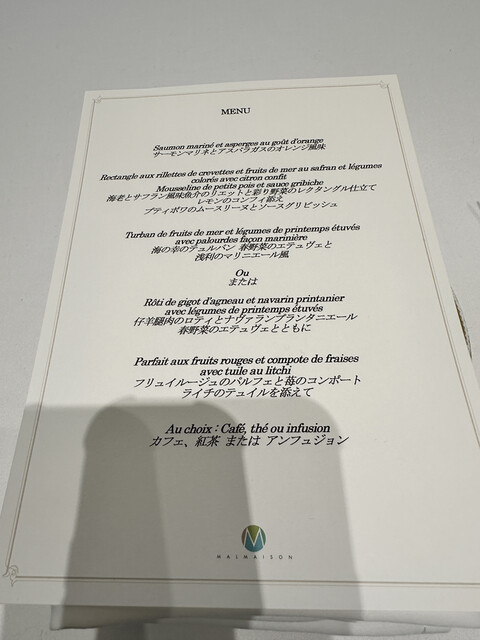 MENU
Saumon mariné et asperges au goût d'orange
サーモンマリネとアスパラガスのオレンジ風味
Rectangle aux rillettes de crevettes et fruits de mer au safran et légumes
colorés avec citron confit
Mousseline de petits pois et sauce gribiche
海老とサフラン風味魚介のリエットと彩り野菜のレクタングル仕立て
レモンのコンフィ添え
プティポワのムースリーヌとソースグリビッシュ
Turban de fruits de mer et légumes de printemps étuvés
avec palourdes façon marinière
海の幸のテュルバン 春野菜のエテュヴェと
浅利のマリニエール風
Ou
または
Rôti de gigot d'agneau et navarin printanier
avec légumes de printemps étuvés
仔羊腿肉のロティとナヴァランプランタニエール
春野菜のエテュヴェとともに
Parfait aux fruits rouges et compote de fraises
avec tuile au litchi
フリュイルージュのパルフェと苺のコンポート
ライチのテュイルを添えて
Au choix : Café, thé ou infusion
カフェ、紅茶 または アンフュジョン
M
MALMAISON